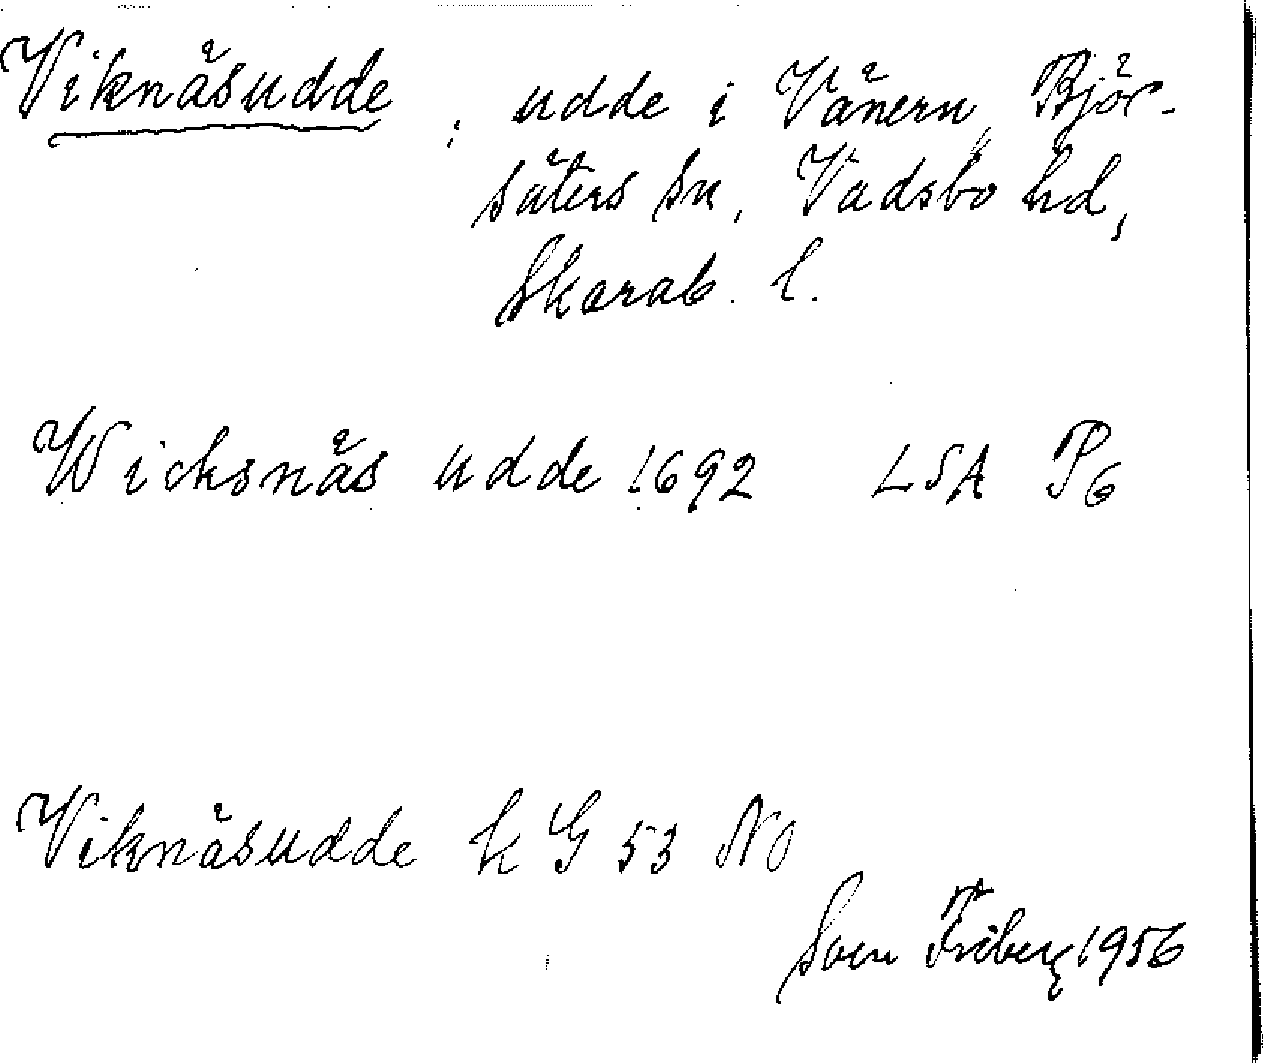 Viknäsudde, udde i Vänern, Björ-
säters sn, Vadsbo hd,
Skarab. l.
Wicksnäs udde 1692 LSA P6
Viknäsudde k G 53 NO
Sven Friberg 1956